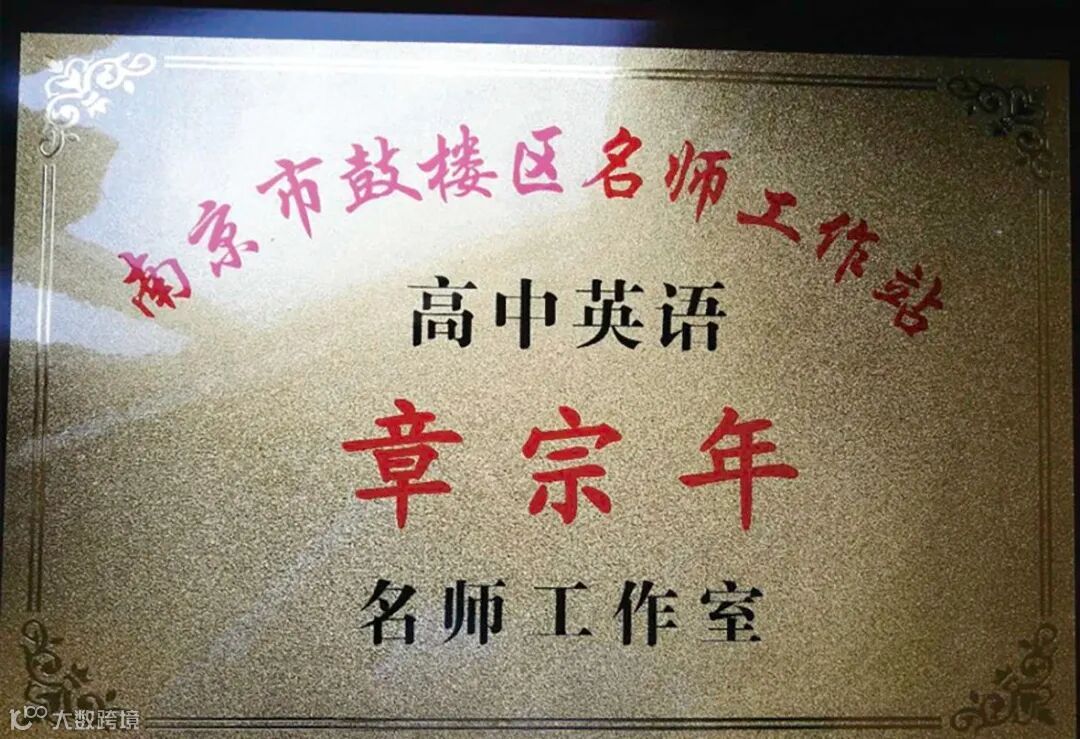 南京市鼓楼区名师工作站
高中英语
章宗年
名师工作室
大数跨境